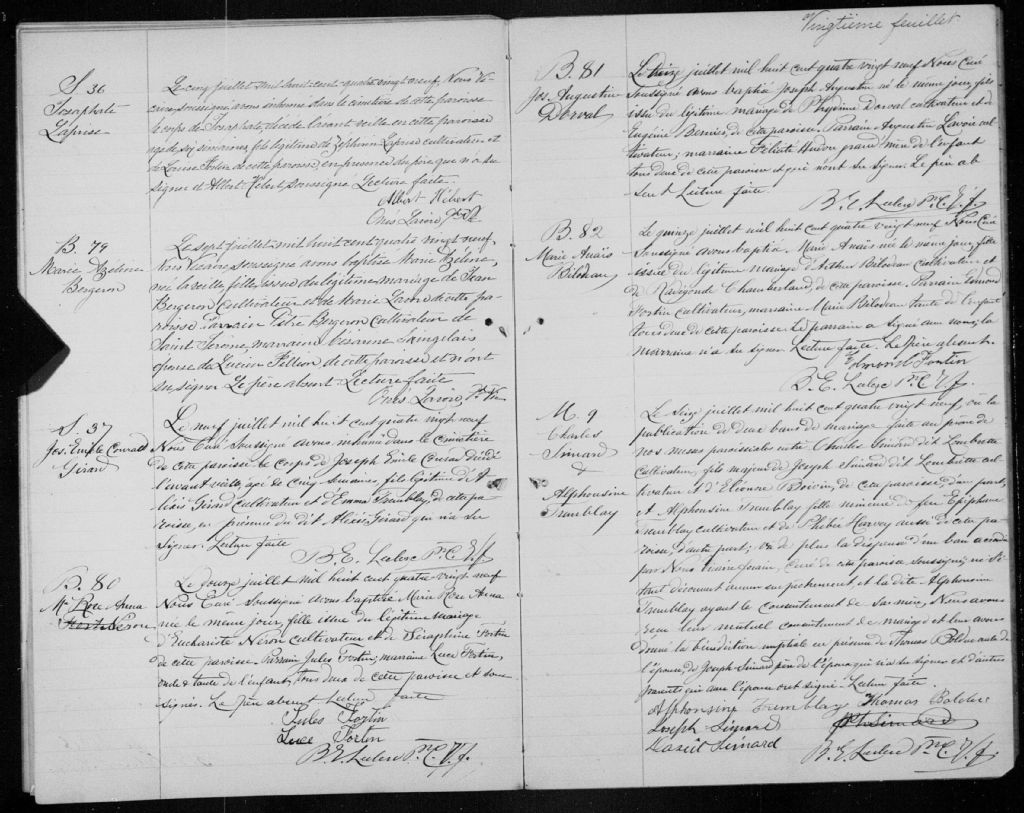 Vingtième feuillet
S. 36
Josaphate
Laprise
Le cinq juillet mil huit cent quatre vingt neuf, Nous Vi-
caire soussigné avons inhumé dans le cimetière de cette paroisse
le corps de Josaphate, décédé l'avant veille en cette paroisse
agé de six semaines, fils légitime de Zéphirin Laprise cultivateur et
de Louise Fortin de cette paroisse, en presence du père qui n'a su
signer et Albert Hébert soussigné Lecture faite.
Albert Hébert
Onés. Lavoie, Ptre
B. 79
Marie Azelina
Bergeron
Le sept juillet mil huit cent quatre vingt neuf,
Nous Vicaire soussigné avons baptisé Marie Azelina,
née la veille, fille issue du légitime mariage de Jean
Bergeron Cultivateur et de Marie Lavoie de cette pa-
roisse Parrain Pitre Bergeron cultivateur de
Saint Jerome, marraine Césarine Langelais
épouse de Lucien Pellion, de cette paroisse et n'ont
su signer Le père absent Lecture faite
Onés. Lavoie, Ptr. Vic.
S. 37
Jos. Emile Conrad
Girard
Le neuf juillet mil huit cent quatre vingt neuf
Nous Curé Soussigné avons inhumé dans le Cimetière
de cette paroisse le corps de Joseph Emile Conrad décédé
l'avant veille, agé de cinq semaines, fils légitime d'A-
lexis Girard cultivateur et d'Emma Tremblay, de cette pa-
roisse, en présence du dit Alexis Girard qui n'a su
signer. Lecture faite
B. E. Leclerc Ptre C. V. f.
B. 80
Mie Rose Anna
Néron
Le douze juillet mil huit cent quatre vingt neuf
Nous Curé Soussigné avons baptisé Marie Rose Anna
née le même jour, fille issue du légitime mariage
d'Euchariste Néron cultivateur et de Séraphine Fortin
de cette paroisse. Parrain Jules Fortin; marraine Luce Fortin,
oncle & tante de l'enfant, tous deux de cette paroisse et sous-
signés. Le père absent Lecture faite
Jules Fortin
Luce Fortin
B. E. Leclerc Ptre C. V. f.
B. 81
Jos. Augustin
Dorval
Le treize juillet mil huit cent quatre vingt neuf Nous Curé
Soussigné avons baptisé Joseph Augustin né le même jour, fils
issu du légitime mariage de Onezime Dorval cultivateur et de
Eugénie Bernier, de cette paroisse. Parrain Augustin Lavoie cul-
tivateur; marraine Félicité Hudon grand'mère de l'enfant
tous deux de cette paroisse et qui n'ont su signer. Le père ab-
sent Lecture faite.
B. E. Leclerc Ptre C. V. f.
B. 82
Marie Anaïs
Bilodeau
Le quinze juillet mil huit cent quatre vingt neuf Nous Curé
Soussigné avons baptisé Marie Anaïs née le même jour, fille
issue du légitime mariage d'Arthur Bilodeau cultivateur et
de Radegonde Chamberland, de cette paroisse. Parrain Edmond
Fortin cultivateur, marraine Marie Bilodeau tante de l'enfant
tous deux de cette paroisse. Le parrain a signé avec nous; la
marraine n'a su signer. Lecture faite. Le père absent.
Edmond Fortin
B. E. Leclerc Ptre C. V. f.
M. 9
Charles
Simard
&
Alphonsine
Tremblay
Le Seize juillet mil huit cent quatre vingt neuf, vu la
publication de deux bans de mariage faite au prône de
nos messes paroissiales entre Charles Simard dit Lombrette
cultivateur, fils majeur de Joseph Simard dit Lombrette cul-
tivateur et d'Eléonre Boivin, de cette paroisse d'une part;
et Alphonsine Tremblay fille mineure de feu Epiphane
Tremblay cultivateur et de Phébée Harvey aussi de cette pa-
roisse, d'autre part; vu de plus la dispense d'un ban accordé
par Nous vicaire forain, curé de cette paroisse, soussigné; ne s'é-
tant découvert aucun empêchement et la dite Alphonsine
Tremblay ayant le consentement de sa mère, Nous avons
reçu leur mutuel consentement de mariage et leur avons
donné la bénédiction nuptiale en présence de Thomas Bolduc oncle de
l'épouse, de Joseph Simard père de l'époux qui n'a su signer et d'autres
parents qui avec l'épouse ont signé. Lecture faite.
Alphonsine Tremblay Thomas Bolduc
Joseph Simard
Simard
B. E. Leclerc Ptre C. V. f.